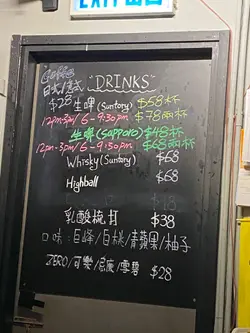 EXIT 出口
"DRINKS"
Coffee
$28
生啤 (Suntory) $58杯
12pm-3pm / 6-9:30pm $78兩杯
生啤 (Sapporo) $48杯
12pm-3pm / 6-9:30pm $68兩杯
Whisky (Suntory) $68
Highball $68
乳酸梳打 $38
口味: 巨峰/白桃/青蘋果/柚子
ZERO/可樂/忌廉/雪碧 $28